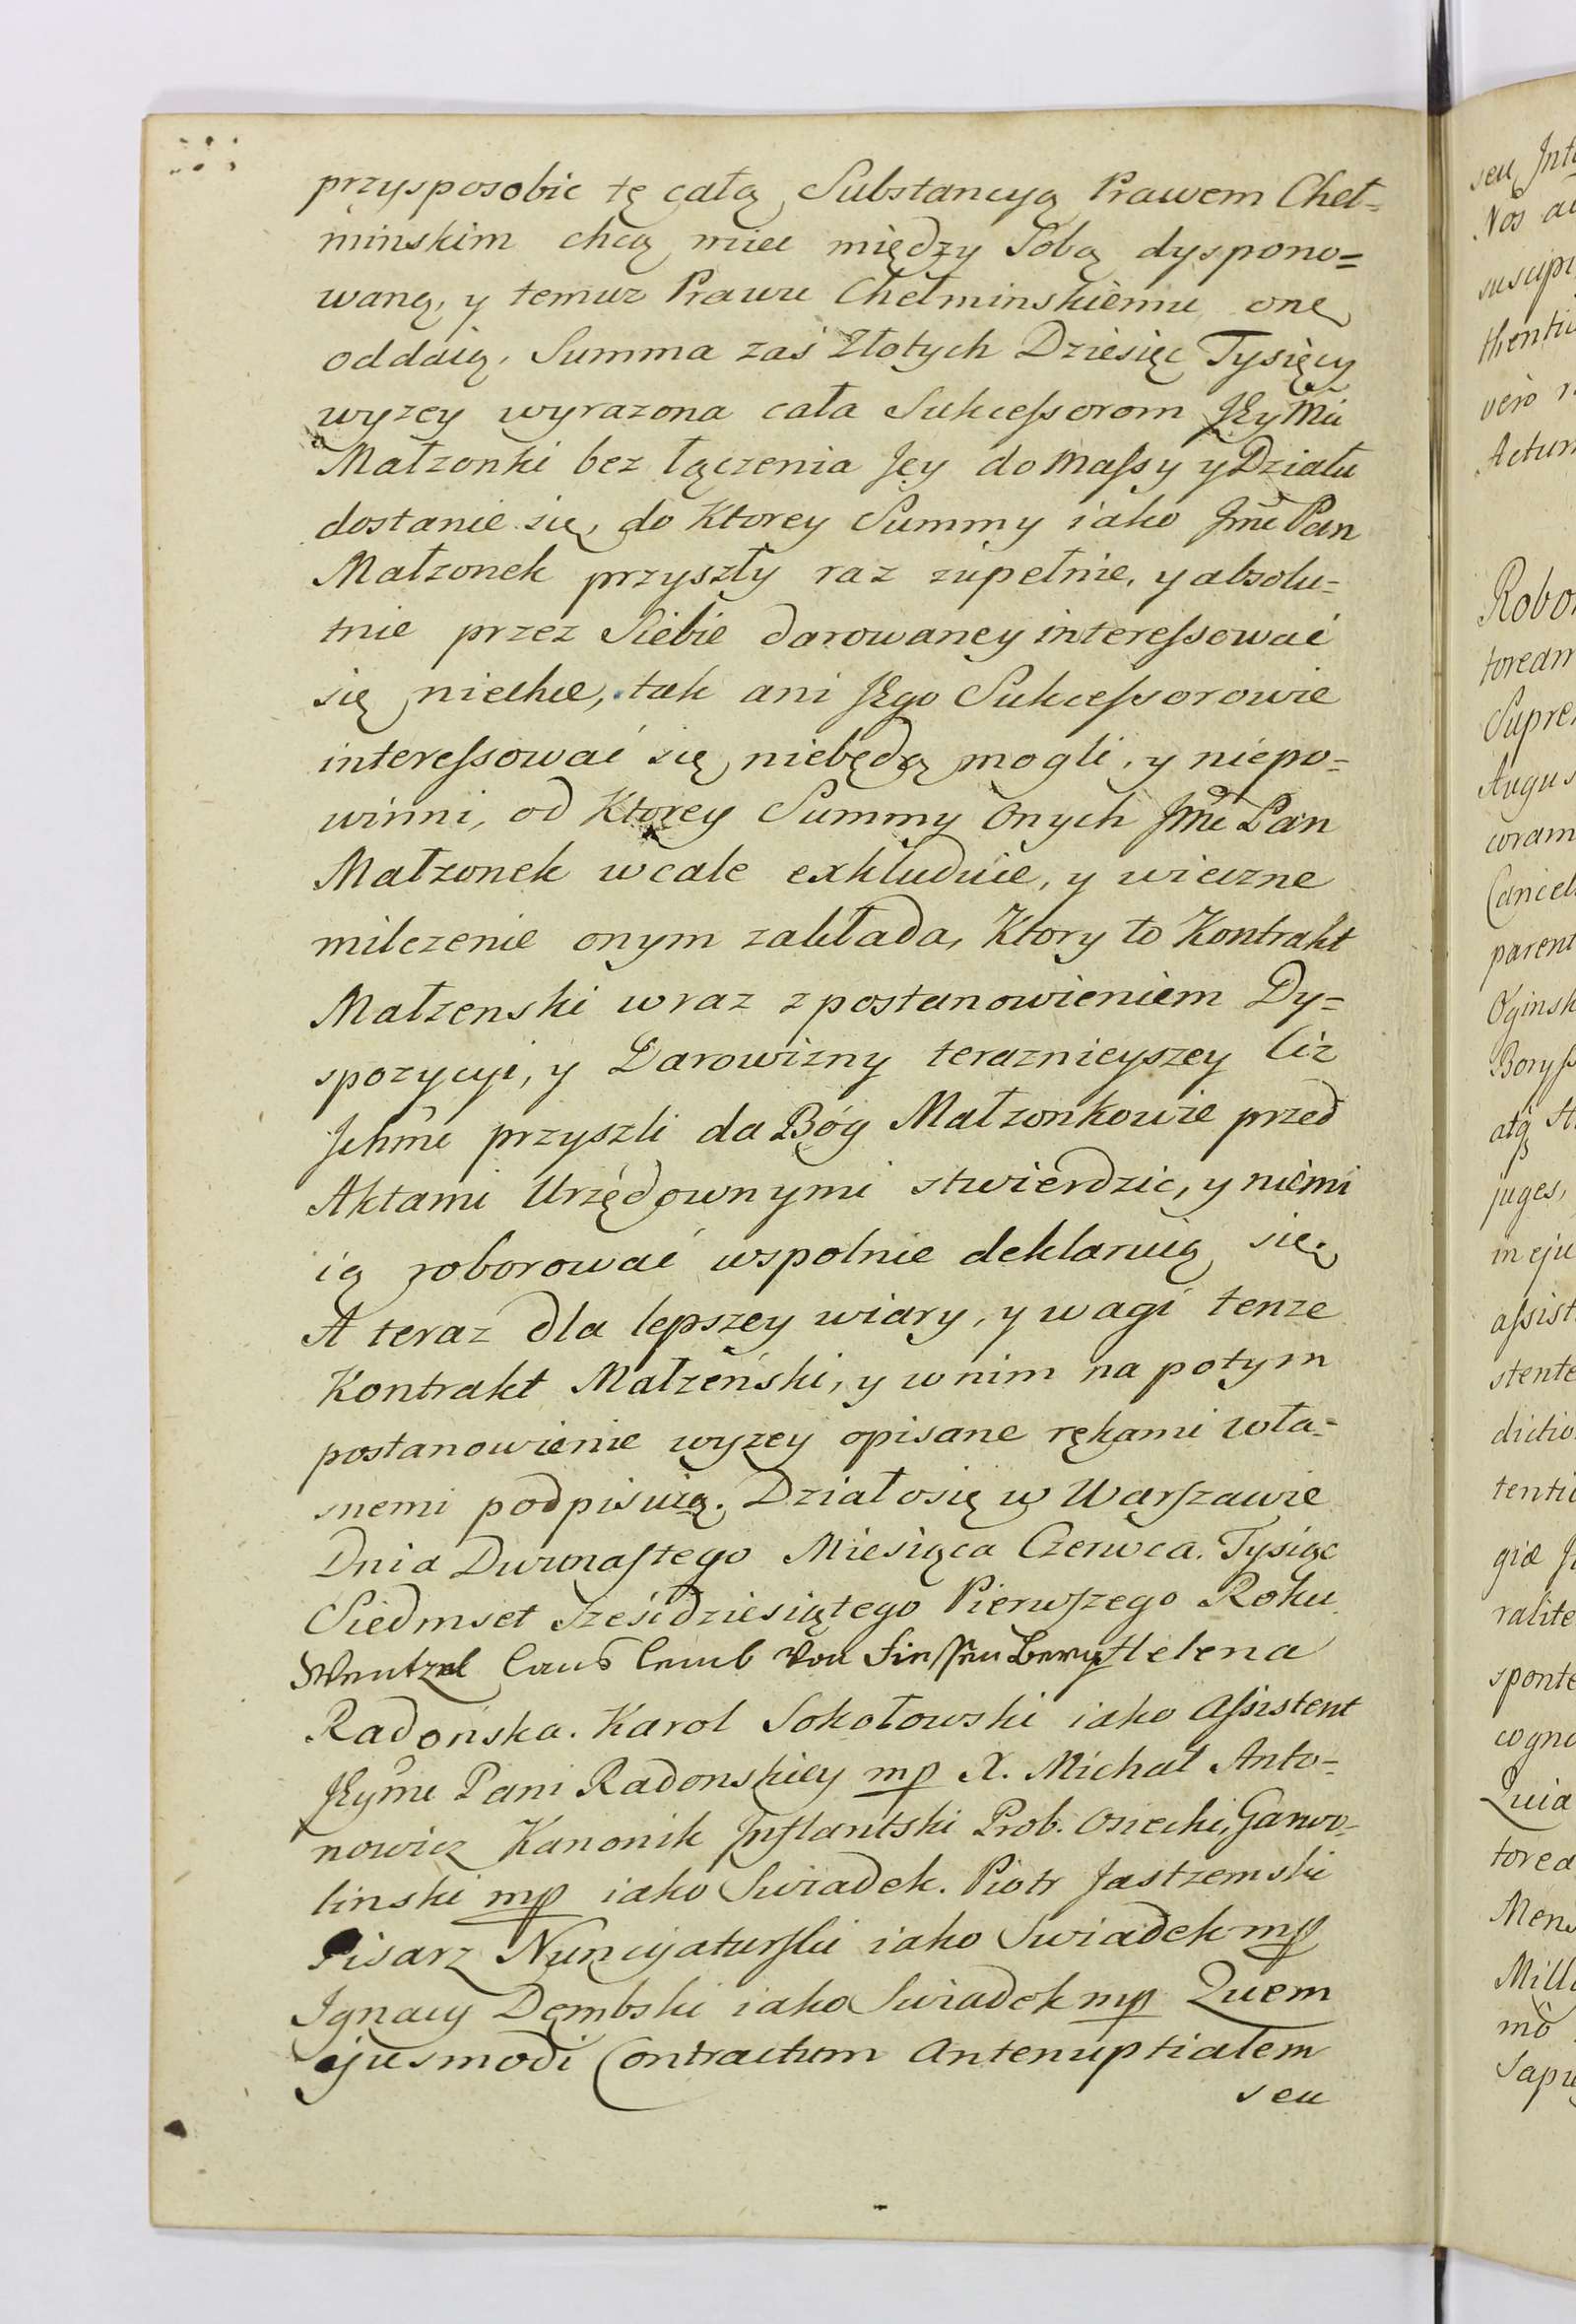 przysposobic tę całą Substancyą Prawem Cheł=
minskim chcą miec między Sobą dyspono=
waną, y temuz Prawu Chełminskiemu onę
oddaią. Summa zaś Złotych Dziesięc Tysięcy
wyzey wyrazona cała Sukcessorom JEyMci
Małzonki bez łączenia Jey do Massy y Działu
dostanie się, do Ktorey Summy iako Jmć Pan
Małzonek przyszły raz zupełnie, y absolu=
tnie przez Siebie darowaney interessować
się niechce, tak ani JEgo Sukcessorowie
interessować się niebędą mogli, y niepo=
winni, od Ktorey Summy Onych Jmć Pan
Małzonek wcale exkluduie, y wieczne
milczenie onym zakłada, Ktory to Kontrakt
Małzenski wraz z postanowieniem Dy=
spozycyi, y Darowizny teraznieyszey Ciz
Jchmć przyszli da Bóg Małzonkowie przed
Aktami Urzędownymi stwierdzic, y niemi
ią roborować wspolnie deklaruią się.
A teraz dla lepszey wiary, y wagi tenze
Kontrakt Małzeński, y w nim na potym
postanowienie wyzey opisane rękami wła=
snemi podpisuią. Działo się w Warszawie
Dnia Dwunastego Miesiąca Czerwca. Tysiąc
Siedmset Sześćdziesiątego Pierwszego Roku
Wentzel von Helena
Radońska. Karol Sokołowski iako Assistent
JEymć Pani Radonskiey mp X. Michał Anto=
nowicz Kanonik Inflantski Prob. Osiecki, Garwo=
linski mp iako Swiadek. Piotr Jastzemski
Pisarz Nuncyaturski iako Swiadek mp
Ignacy Dembski iako Swiadek mp Quem
ejusmodi Contractum Antenuptialem
seu